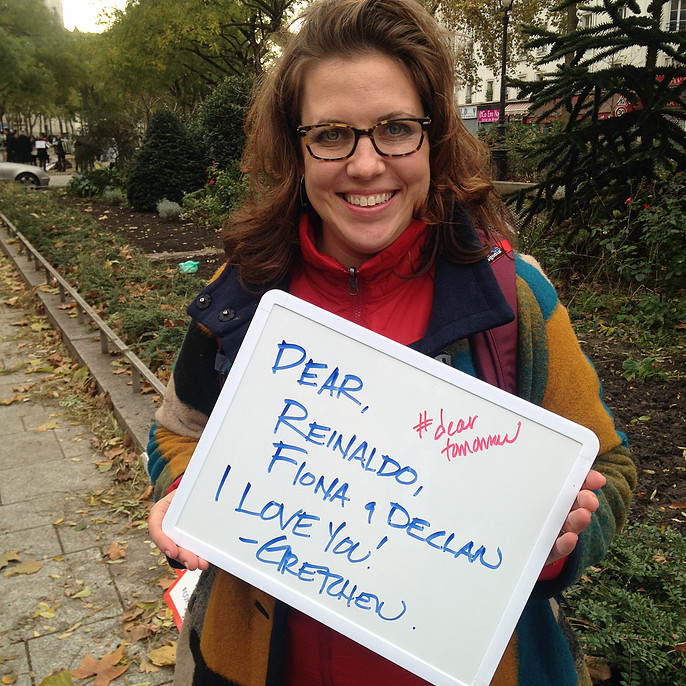 DEAR,
REINALDO,
FIONA & DECLAN
I LOVE YOU!
-GRETCHEN.
#dear
tomorrow